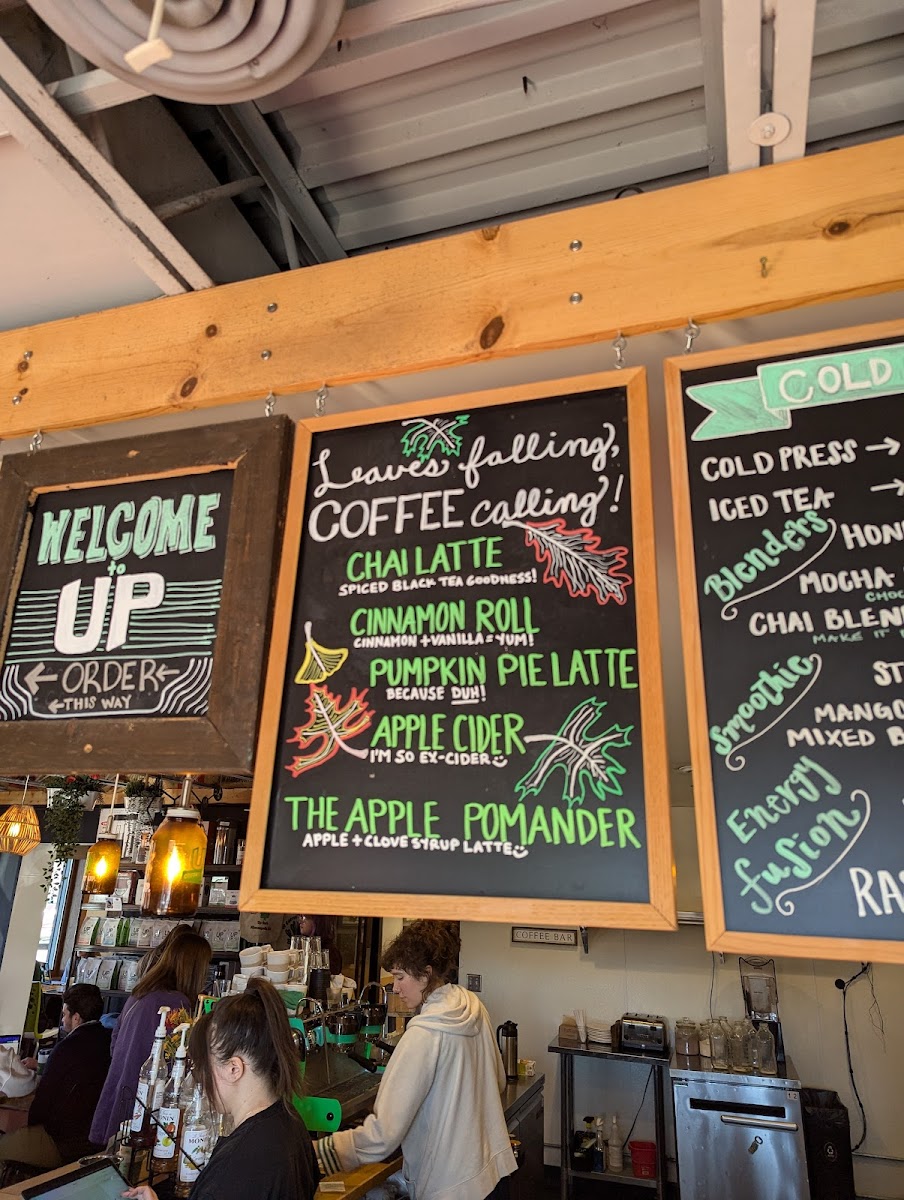 WELCOME
to
UP
←ORDER←
←THIS WAY
Leaves falling,
COFFEE calling!
CHAI LATTE
SPICED BLACK TEA GOODNESS!
CINNAMON ROLL
CINNAMON + VANILLA = YUM!
PUMPKIN PIE LATTE
BECAUSE DUH!
APPLE CIDER
I'M SO EX-CIDER
THE APPLE POMANDER
APPLE + CLOVE SYRUP LATTE
COLD
COLD PRESS →
ICED TEA →
Blenders
MOCHA
MAKE IT
Smoothie
Energy
fusion
COFFEE BAR